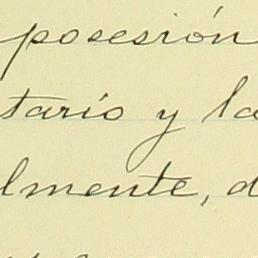 posesión
tario y la
lmente, d